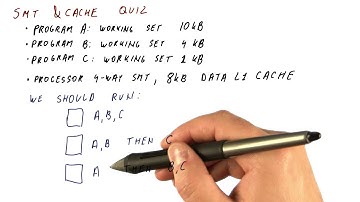 SMT & CACHE QUIZ
• PROGRAM A: WORKING SET 10 kB
• PROGRAM B: WORKING SET 4 kB
• PROGRAM C: WORKING SET 1 kB
• PROCESSOR 4-WAY SMT, 8kB DATA L1 CACHE
WE SHOULD RUN:
A,B,C
A,B THEN C
A B,C